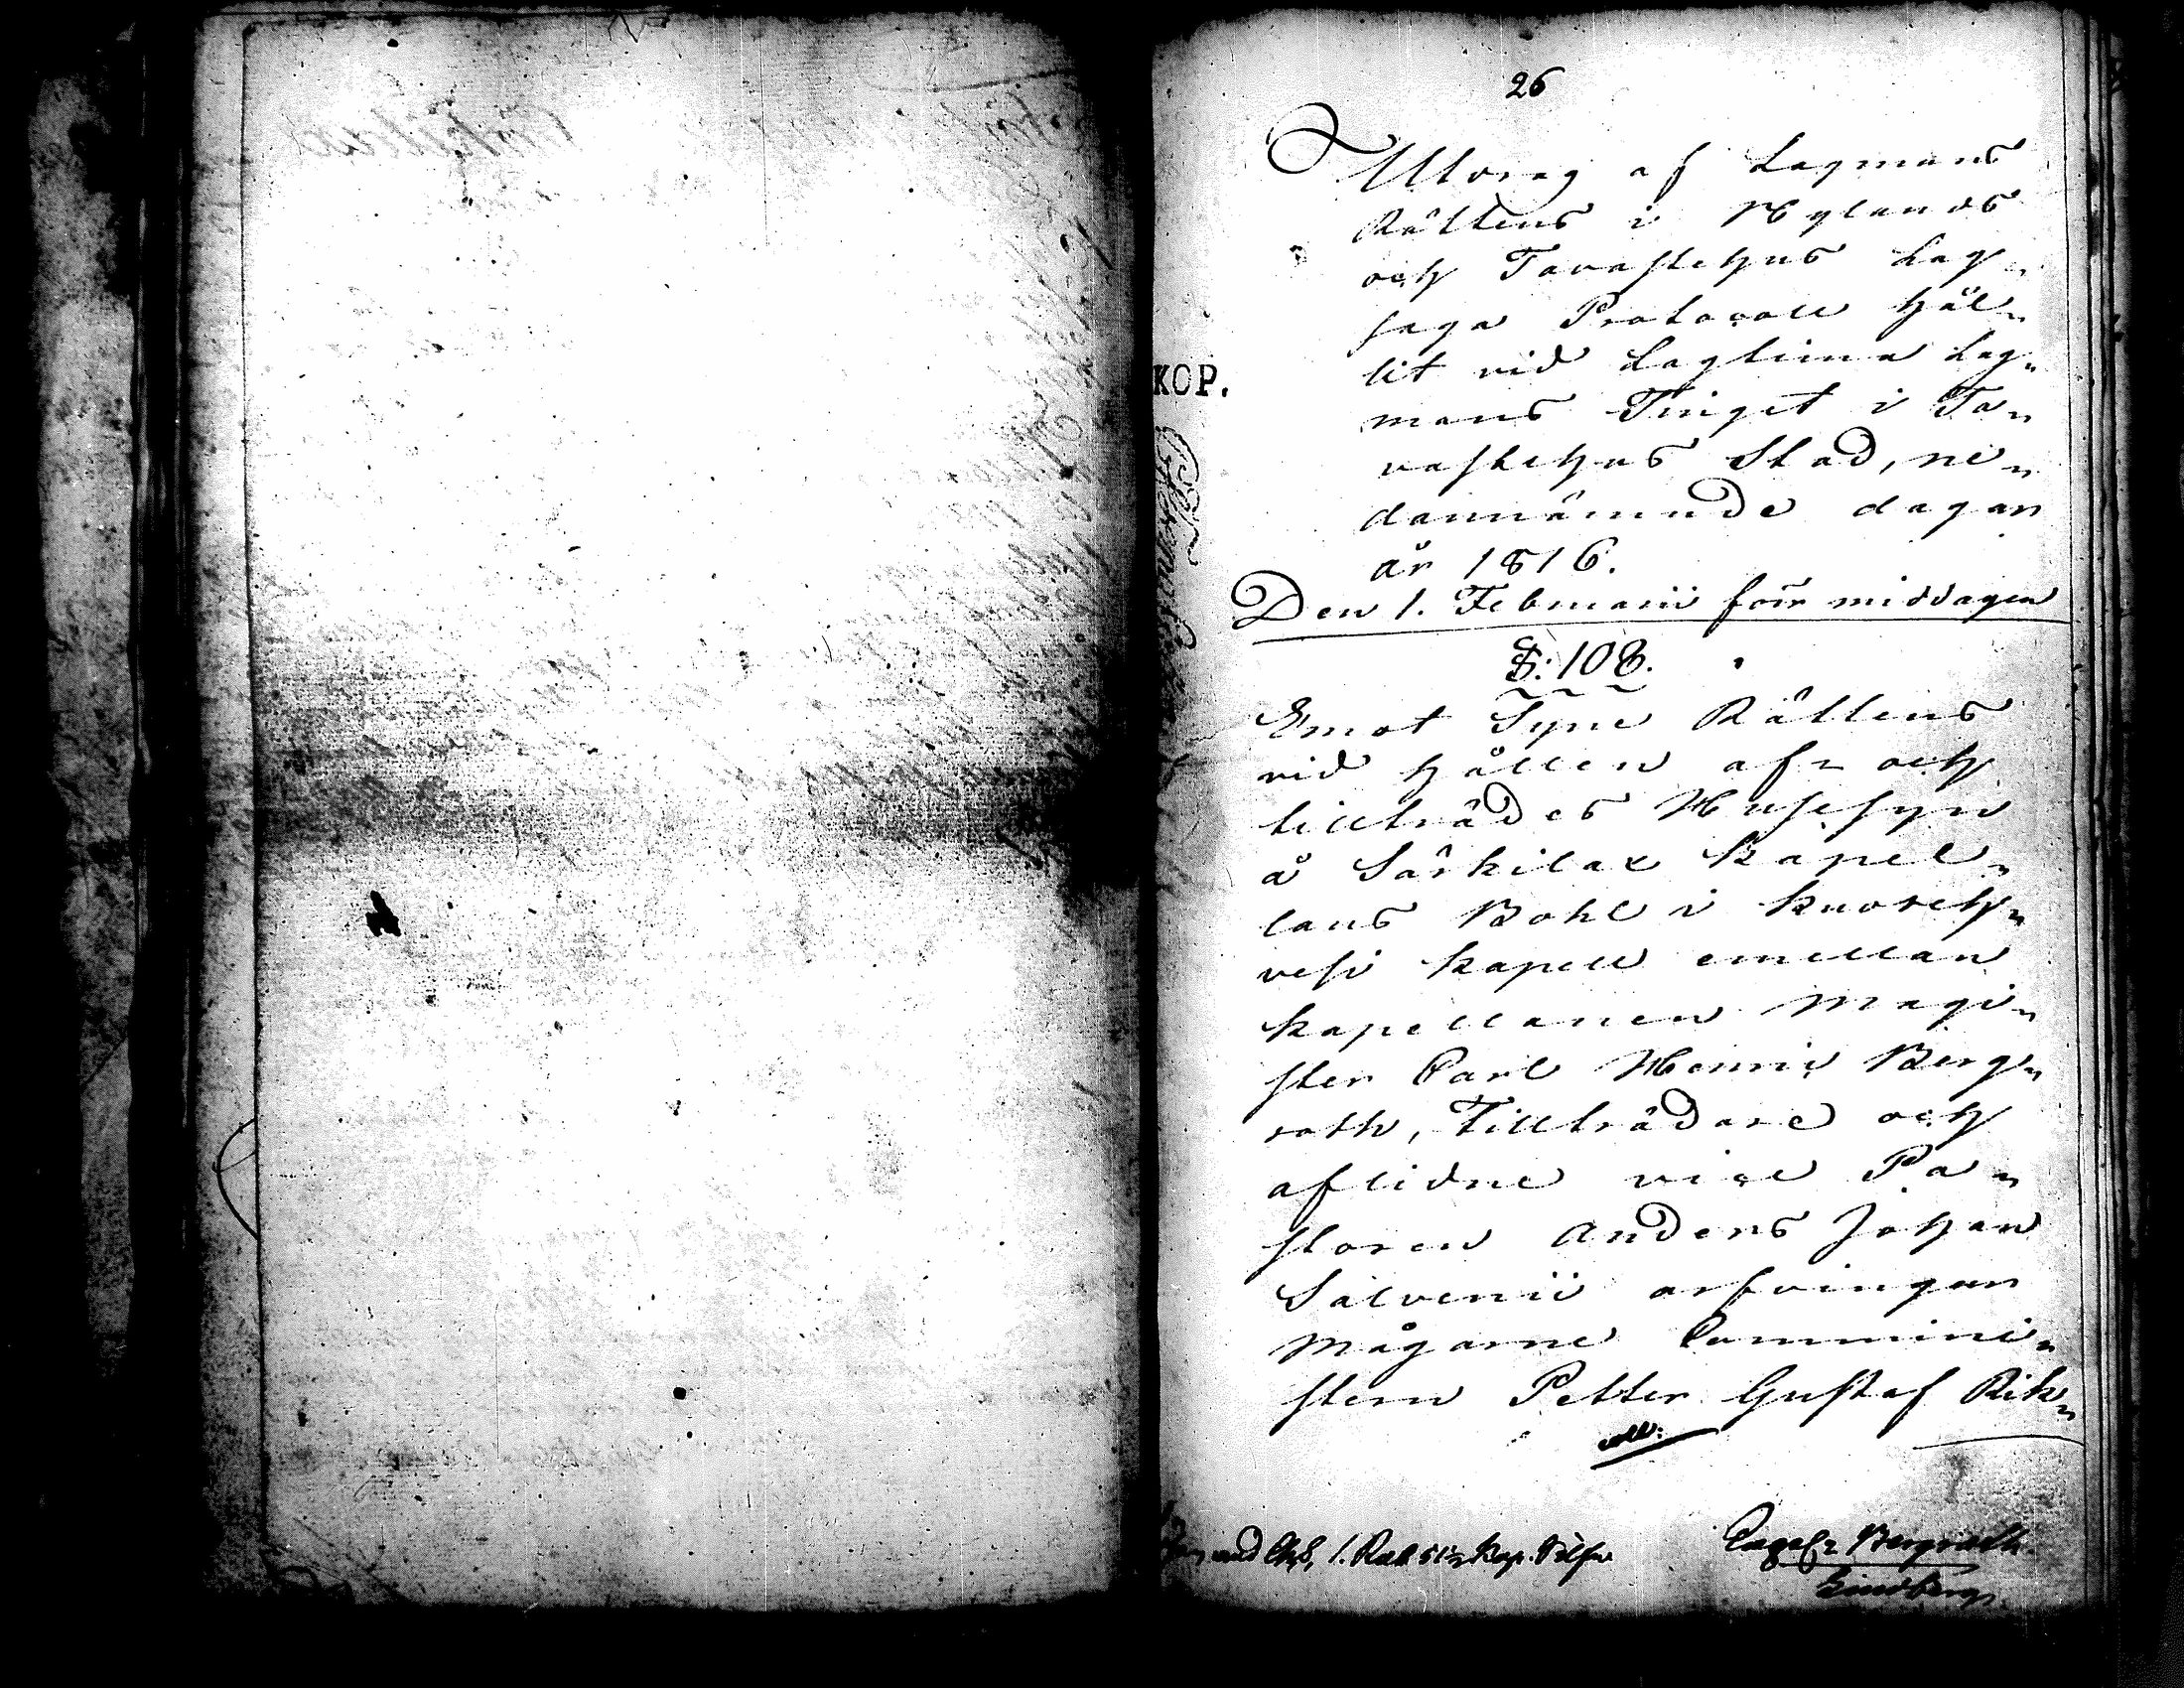 26
Utdrag af Lagmans
Rättens i Nylands
och Tavastehus Lag„
saga Protocoll hål„
lit vid Lagtima Lag„
mans Tinget i Ta„
vastehus Stad, ne„
dannämnde dagar
år 1816.
Den 1. Februarii förr middagen
§: 108.
Emot Syne Rättens
vid hållen af- och
tillträdes Husesyn
å Särkilax Kapel„
lans Bohl i Kuoreh„
vesi Kapell emellan
Kapellanen Magi„
ster Carl Henric Berg„
roth, Tillträdare och
aflidne vice Pa„
storen Anders Johan
Salvenii arfvingar
Mågarne Commini„
stern Petter Gustaf Rik„
KOP.
1. Rub. 51½ Kop. Silfver
Bergroth
Lindberg